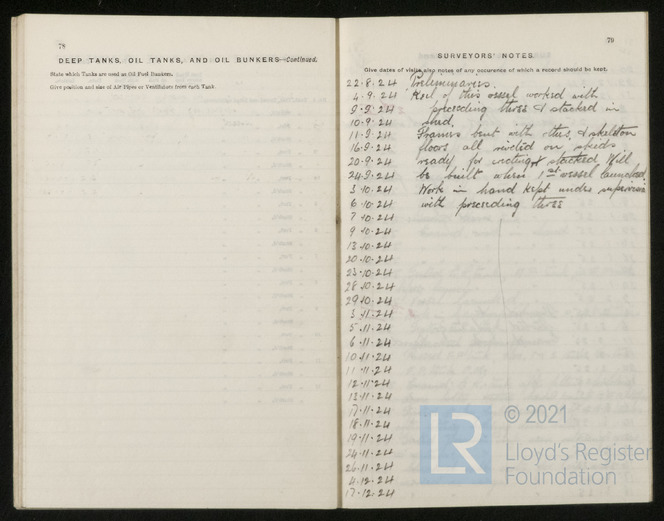 78
DEEP TANKS, OIL TANKS, AND OIL BUNKERS—Continued.
State which Tanks are used as Oil Fuel Bunkers.
Give position and size of Air Pipes or Ventilators from each Tank.
79
SURVEYORS' NOTES.
Give dates of visits also notes of any occurence of which a record should be kept.
22.8.24 Preliminaries.
4.9.24 Keel of this vessel worked with
9.9.24 preceeding three & stacked in
10.9.24 shed.
11.9.24 Frames bent with others, & skeleton
16.9.24 floors all riveted on skeds
20.9.24 ready for erecting & stacked Will
24.9.24 be built when 1st vessel launched.
3.10.24 Work in hand kept under supervision
6.10.24 with preceeding three
7.10.24
9.10.24
13.10.24
20.10.24
23.10.24
28.10.24
29.10.24
3.11.24
5.11.24
6.11.24
10.11.24
11.11.24
12.11.24
13.11.24
17.11.24
18.11.24
19.11.24
24.11.24
26.11.24
4.12.24
17.12.24
LR
© 2021
Lloyd's Register
Foundation